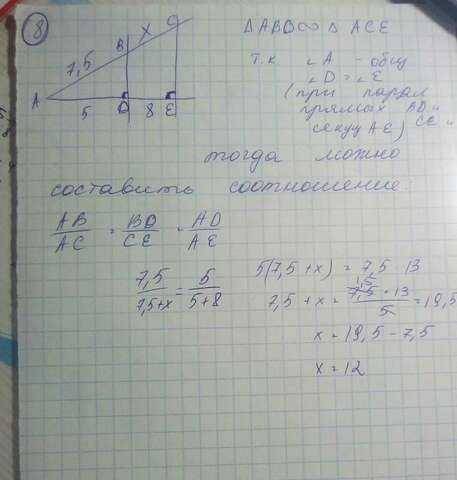 8
C
X
B
7,5
A
5
D
8
E
ΔABD ∞ Δ ACE
т.к ∠A - общ
∠D = ∠E
(при парал
прямых BD и
CE и
секущ AE)
тогда можно
составить соотношение:
AB/AC = BD/CE = AD/AE
7,5/7,5+x = 5/5+8
5(7,5+x) = 7,5 · 13
1,5
7,5 + x = 7,5 · 13/5 = 19,5
x = 19,5 - 7,5
x = 12